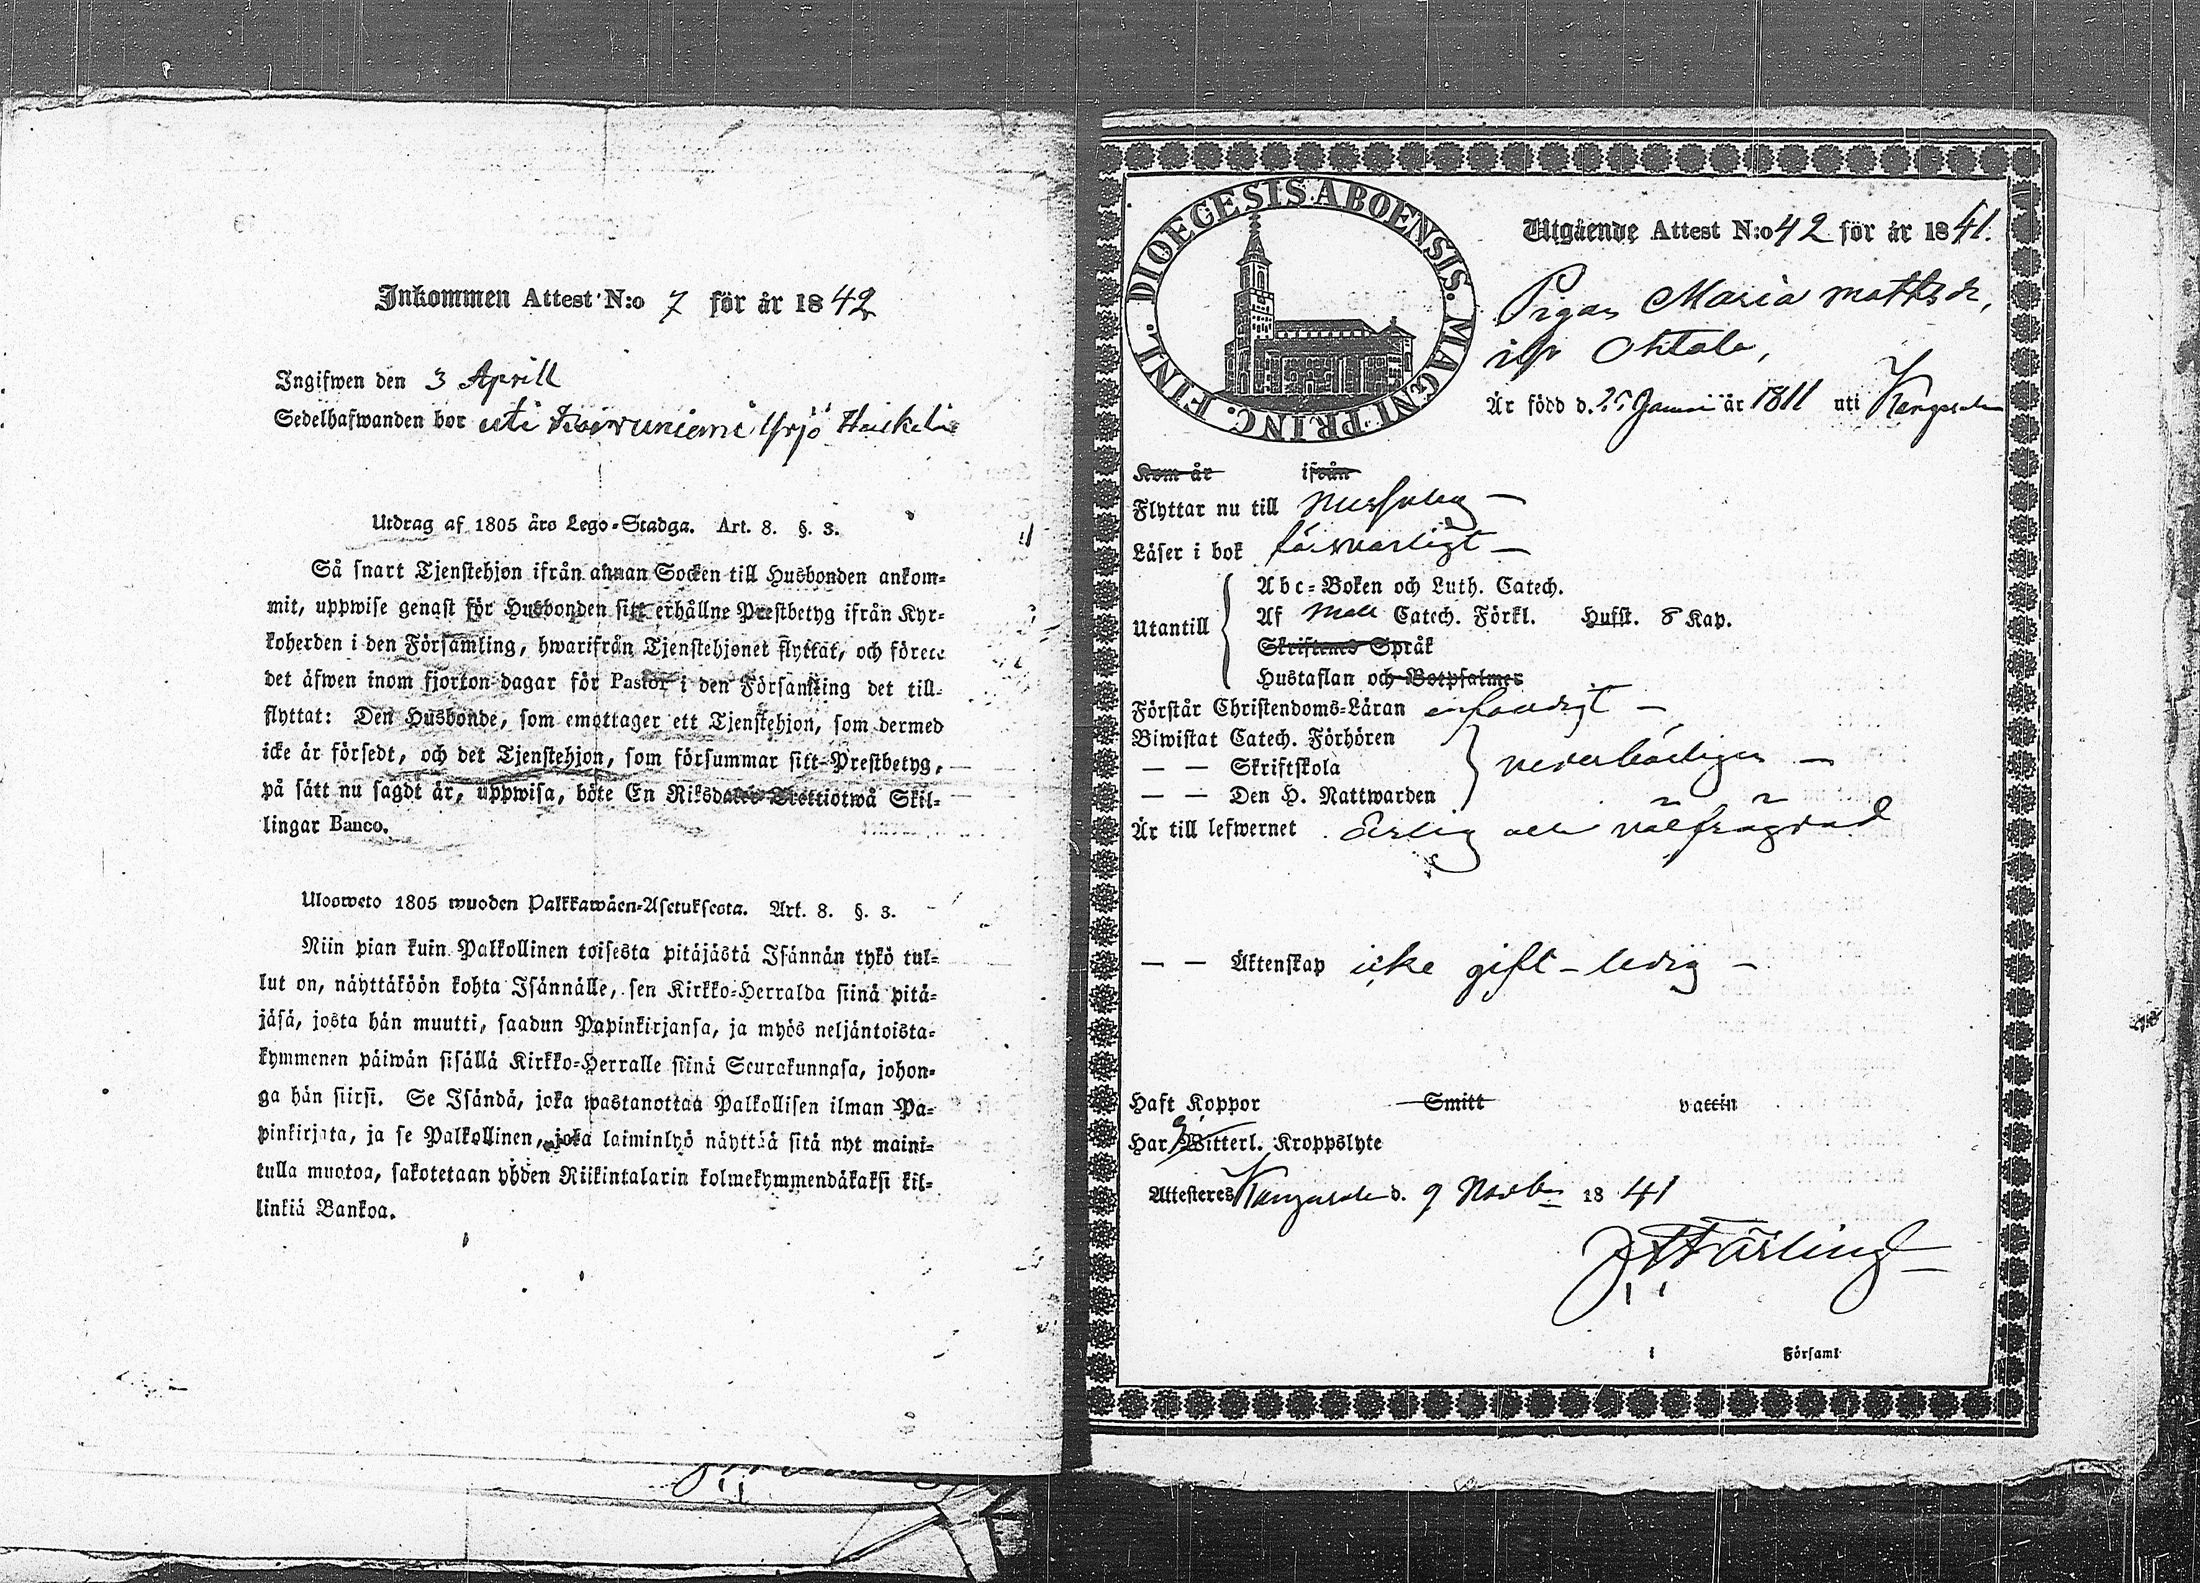 Inkommen Attest N:o 7 för år 1842
Ingifwen den 3 Aprill
Sedelhafwanden bor uti Koivuniemi Yrjö Heikkilä
Utdrag af 1805 års Lego-Stadga. Art. 8. §. 3.
Så snart Tjenstehjon ifrån annan Socken till Husbonden ankom-
mit, uppwise genast för Husbonden sitt erhållne Prestbetyg ifrån Kyr-
koherden i den Församling, hwarifrån Tjenstehjonet flyttat, och förete
det äfwen inom fjorton dagar för Pastor i den Församling det till-
flyttat: Den Husbonde, som emottager ett Tjenstehjon, som dermed
icke är försedt, och det Tjenstehjon, som försummar sitt Prestbetyg,
på sätt nu sagdt är, uppwisa, böte En Riksdaler Trettiotwå Skil-
lingar Banco.
Ulosweto 1805 wuoden Palkkawäen-Asetuksesta. Art. 8. §. 3.
Niin pian kuin Palkollinen toisesta pitäjästä Isännän tykö tul-
lut on, näyttäköön kohta Isännälle, sen Kirkko-Herralda siinä pitä-
jäsä, josta hän muutti, saadun Papinkirjansa, ja myös neljäntoista-
kymmenen päiwän sisällä Kirkko-Herralle siinä Seurakunnasa, johon-
ga hän siirsi. Se Isändä, joka wastanottaa Palkollisen ilman Pa-
pinkirjata, ja se Palkollinen, joka laiminlyö näyttää sitä nyt maini-
tulla muotoa, sakotetaan yhden Riikintalarin kolmekymmendäkaksi kil-
linkiä Bankoa.
DIOECESIS ABOENSIS. MAGNI PRINC. FINL.
Utgående Attest N:o 42 för år 1841.
Pigan Maria Mattsdr,
ifr Ohtola,
Är född d. 25 Januari år 1811 uti Kangasala
Kom år ifrån
Flyttar nu till Messuby
Läser i bok försvarligt
Abc-Boken och Luth. Catech.
Utantill Af Catech. Förkl. Husst. 8 Kap.
Skriftenes Språk
Hustaflan och Botpsalmer
Förstår Christendoms-Läran enfaldigt
Biwistat Catech. Förhören
— — Skriftskola vederbörligen
— — Den H. Nattwarden
Är till lefwernet Ärlig och välfrägdad
— — Äktenskap icke gift - ledig
Haft Koppor Smitt vaccin
Har Witterl. Kroppslyte
Attesteres Kangasala d. 9 Novbr 1841
i Församl